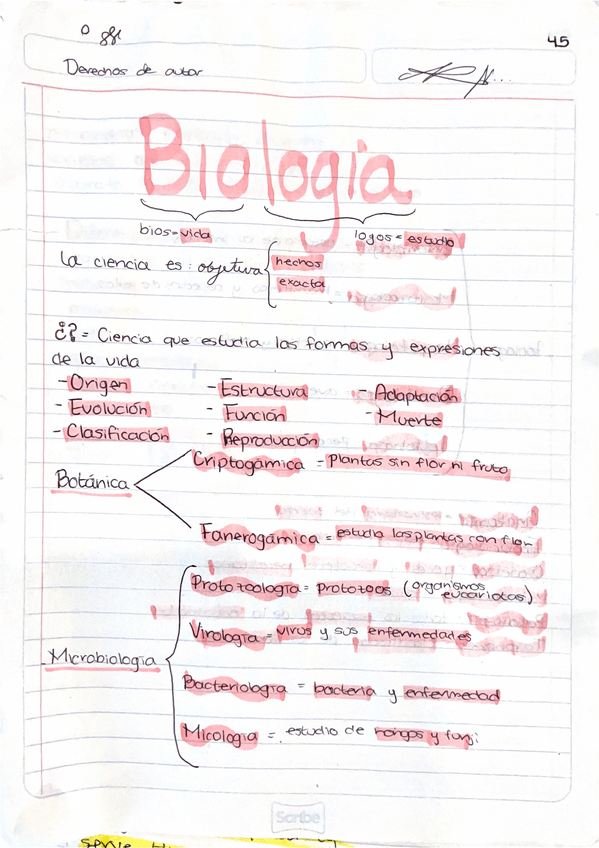 45
Derechos de autor
Biología
bios=vida
logos = estudio
La ciencia es: objetiva
hechos
exacta
¿?= Ciencia que estudia las formas y expresiones
de la vida
- Origen - Estructura - Adaptación
- Evolución - Función - Muerte
- Clasificación - Reproducción
Botánica
Criptogámica = Plantas sin flor ni fruto
Fanerogámica = estudia las plantas con flor
Microbiología
Protozoología = protozoos (organismos
eucariotas)
Virología = virus y sus enfermedades
Bacteriología = bacteria y enfermedad
Micología = estudio de hongos y fungi
Scribe